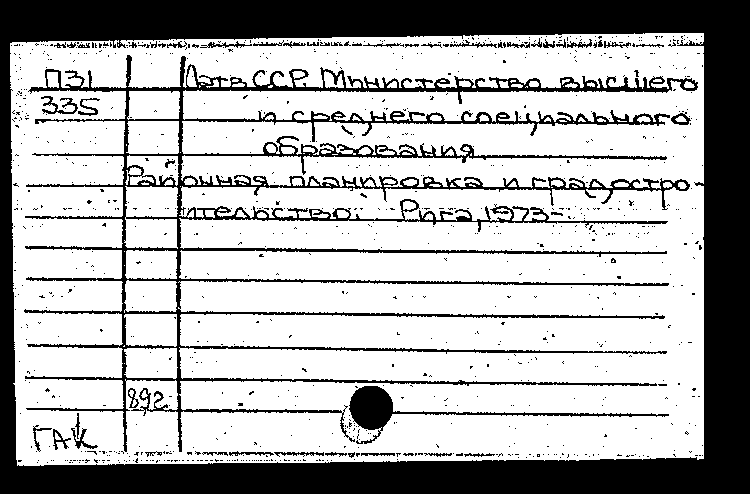 П31 Латв. ССР. Министерство высшего
335 и среднего специального
образования
Районная планировка и градостро-
ительство. Рига, 1973-
892
ГАК